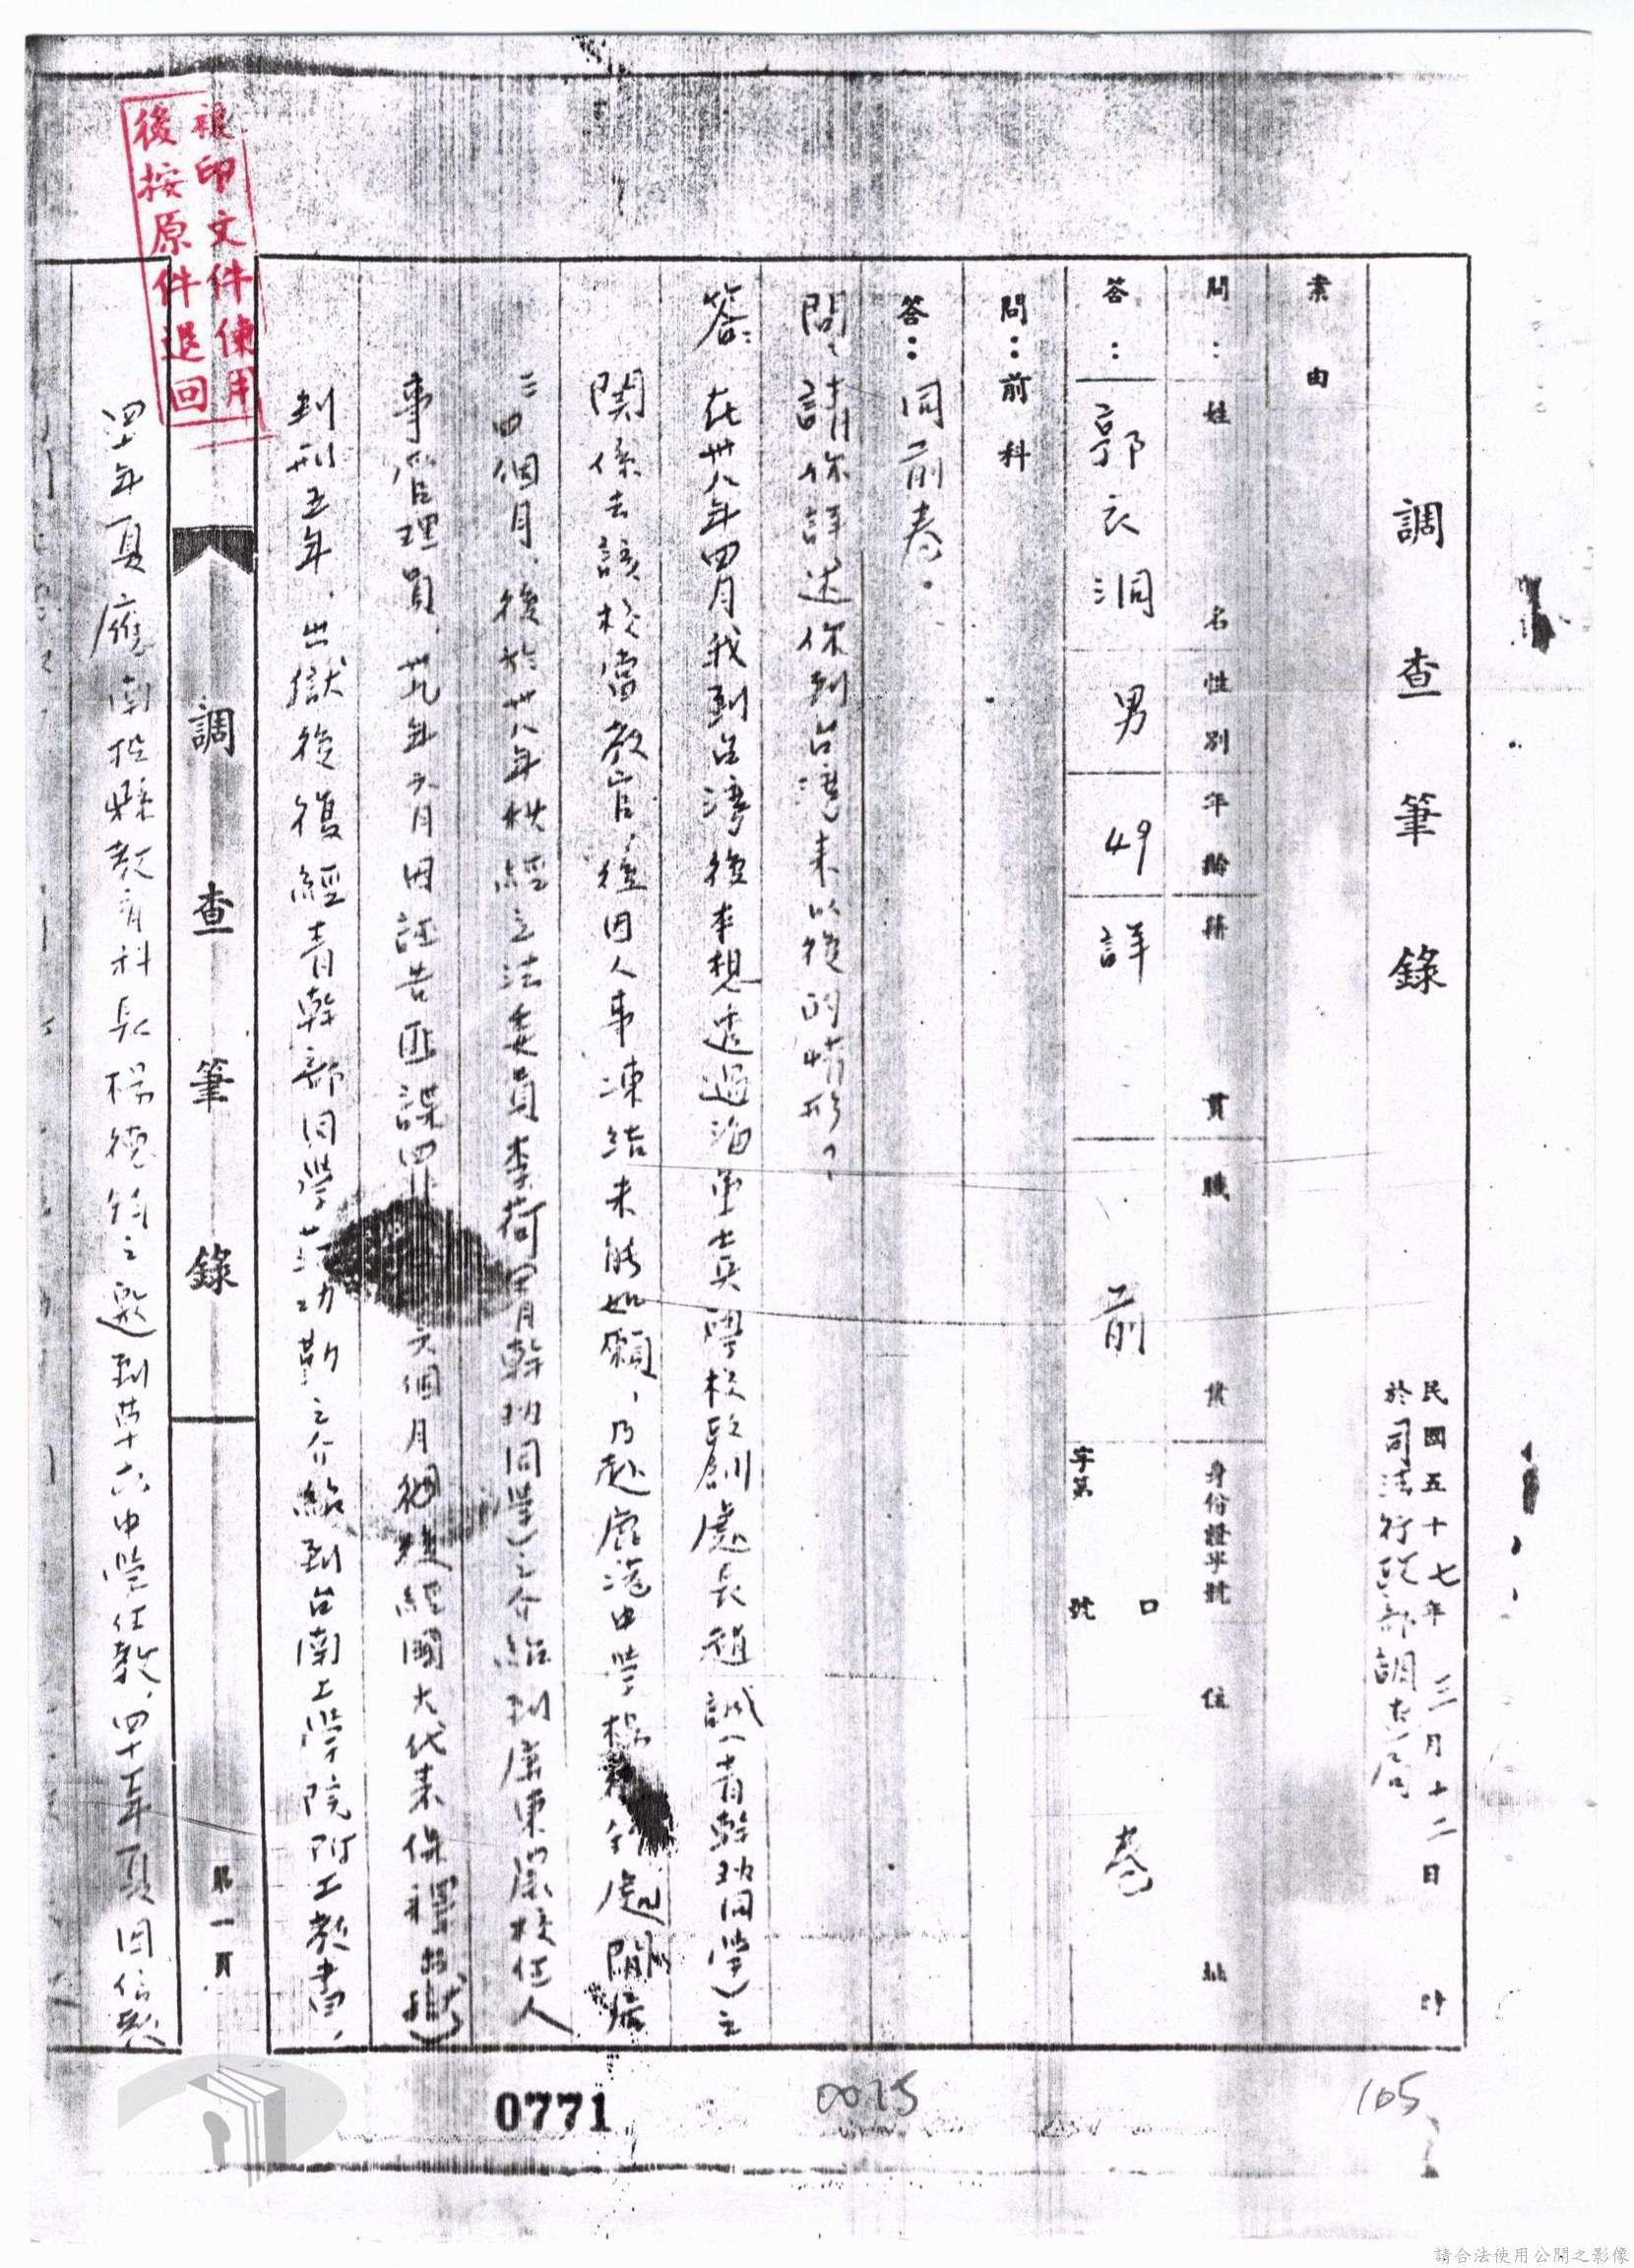 調查筆錄
民國五十七年三月十二日 時
於司法行政部調查局
案由
問：姓名 性別 年齡 籍貫 職業 身份證字號 住址
答：郭衣洞 男 49 詳 前 字第 號 口 卷
問：前科
答：同前卷。
問：請你詳述你到台灣來以後的情形？
答：在卅八年四月我到台灣後本想透過海軍士兵學校政訓處長趙誠（青幹班同學）之
關係去該校當教官，後因人事凍結未能如願，乃赴 港中學 處閒居
三四個月，後於卅八年秋經立法委員李荷（ 青幹班同學）之介紹到屏東 校任人
事管理員，卅九年六月因 告匪諜 六個月 經國大代表保釋出獄）
判刑五年，出獄後復經青幹部同學 功勤之介紹到台南工學院附工教書，
調查筆錄
第一頁
四十年夏應南投縣教育科長楊德鈞之邀到草屯中學任教，四十 年夏因信
複印文件使用
後按原件退回
0771
0025
105
請合法使用公開之影像